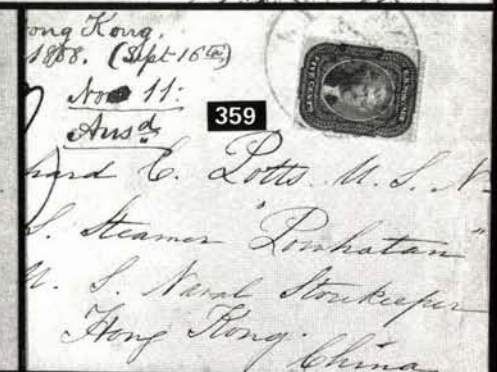 ong Kong.
1858. (Sept 16th)
No 11:
Ansd
359
hard C. Potts. U. S. N.
S. Steamer "Powhatan"
U. S. Naval Storekeeper
Hong Kong.
China